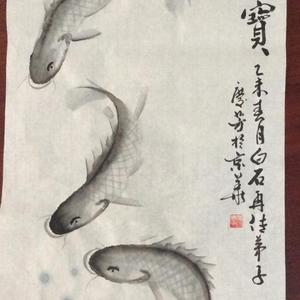 寶
乙未春月白石再传弟子
庆芳於京華